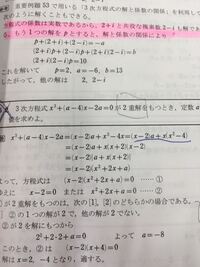 重要例題 53 で用いる「3次方程式の解と係数の関係」を利用して
次のように解くこともできる。
方程式の係数は実数であるから、2+iと共役な複素数2-iも解であ
る。もう1つの解をpとすると、解と係数の関係により
p+(2+i)+(2-i)=-a
p(2+i)+p(2-i)+(2+i)(2-i)=b
(2+i)(2-i)p=10
これを解いて p=2, a=-6, b=13
したがって、他の解は 2, 2-i
3次方程式 x³+(a-4)x-2a=0 が2重解をもつとき、定数a
値を求めよ。
x³+(a-4)x-2a=(x-2)a+x³-4x=(x-2)a+x(x²-4)
=(x-2)a+x(x+2)(x-2)
=(x-2){a+x(x+2)}
=(x-2)(x²+2x+a)
よって、方程式は (x-2)(x²+2x+a)=0 ……①
ゆえに x-2=0 または x²+2x+a=0 ……②
が2重解をもつのは、次の[1], [2]のどちらかの場合である。
②の1つの解が2で、他の解が2でない。
②が2を解にもつから
2²+2・2+a=0 よって a=-8
このとき、②は (x-2)(x+4)=0
解は x=2, -4 となり、適する。